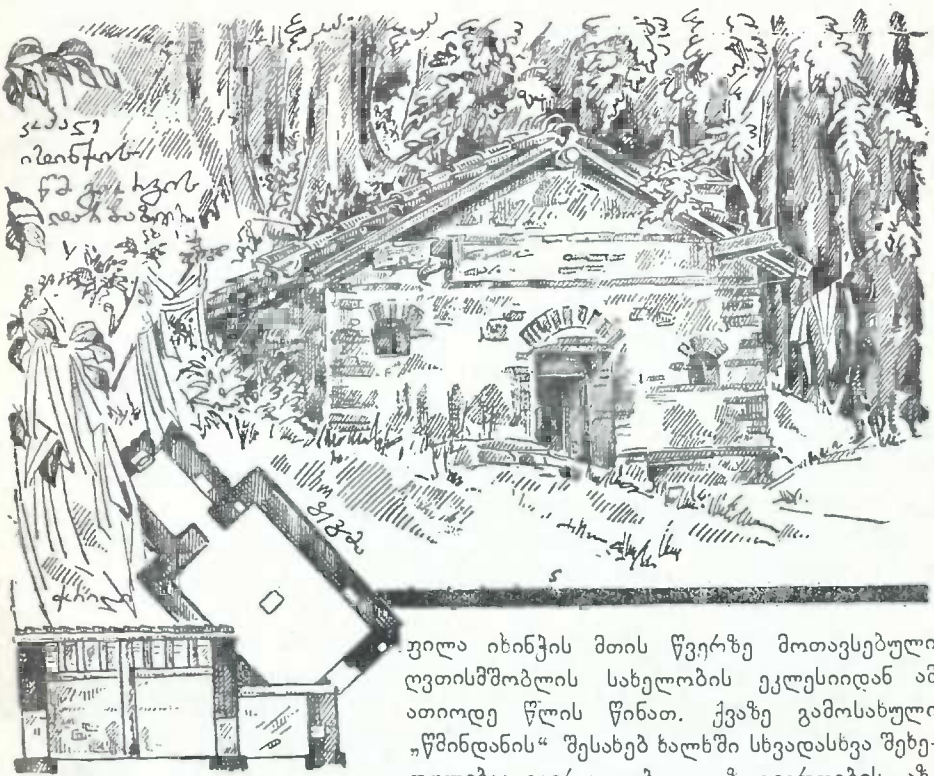 იხინჭის
წმ გიორგის
გეგმა
5
ჭრილი
ფილა იხინჭის მთის წვერზე მოთავსებული
ღვთისმშობლის სახელობის ეკლესიიდან ამ
ათიოდე წლის წინათ. ქვაზე გამოსახული
„წმინდანის“ შესახებ ხალხში სხვადასხვა შეხე-